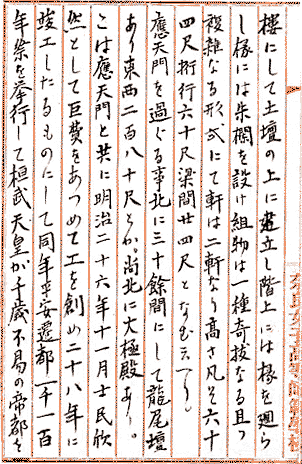 樓にして土壇の上に建立し階上には椽を廻ら
し椽には朱欄を設け組物は一種奇拔なる且つ
複雜なる形式にて軒は二軒なり高さ凡そ六十
四尺桁行六十尺梁間廿四尺となむ云へり。
應天門を過ぐる事北に三十餘間にして龍尾壇
あり東西二百八十尺とか。尚北に大極殿あり。
こは應天門と共に明治二十六年十一月士民欣
然として巨費をあつめて工を創め二十八年に
竣工したるものにして同年平安遷都一千一百
年祭を擧行して桓武天皇が千歳不易の帝都を